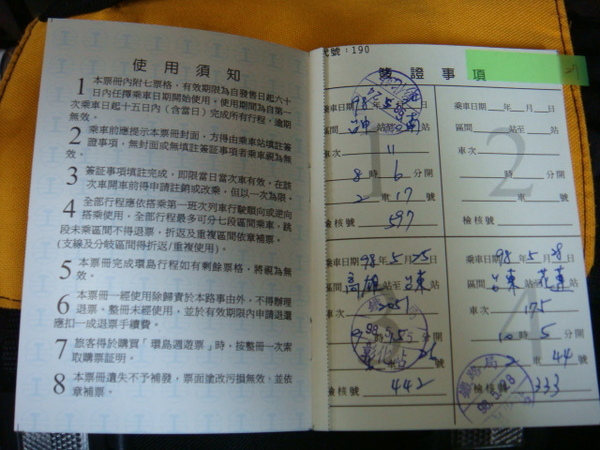 使用須知
1 本票冊內附七票格，有效期限為自發售日起六十
日內任擇乘車日期開始使用，使用期間為自第一
次乘車日起十五日內（含當日）完成所有行程，逾期
無效。
2 乘車前應提示本票冊封面，方得由乘車站填註簽
證事項，無封面或無填註簽證事項者乘車視為無
效。
3 簽證事項填註完成，即限當日當次車有效，在該
次車開車前得申請註銷或改乘，但以一次為限。
4 全部行程應依搭乘第一班次列車行駛順向或逆向
搭乘使用，全部行程最多可分七段區間乘車，跳
段未乘區間不得退票，折返及重複區間依章補票。
(支線及分岐區間得折返/重複使用)。
5 本票冊完成環島行程如有剩餘票格，將視為無
效。
6 本票冊一經使用除歸責於本路事由外，不得辦理
退票，整冊未經使用，並於有效期限內申請退還
應扣一成退票手續費。
7 旅客得於購買「環島週遊票」時，按整冊一次索
取購票証明。
8 本票冊遺失不予補發，票面塗改污損無效，並依
章補票。
代號：190
簽證事項
1
乘車日期 98年5月 日
區間 站至 站
車次 11
8時6分開
2車17號
檢核號 597
2
乘車日期 年 月 日
區間 站至 站
車次
時 分開
車 號
檢核號
乘車日期 98年5月25日
區間 高雄 台東
車次 2051
檢核號 442
4
乘車日期 98年5月28日
區間 台東 花東
車次 175
10時5分開
2車44號
檢核號 333